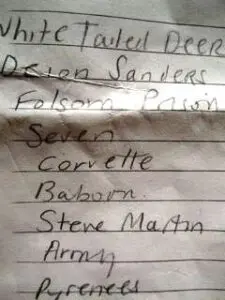 White Tailed Deer
Deion Sanders
Folsom Prison
Seven
Corvette
Baboon
Steve Martin
Army
Pyrenees